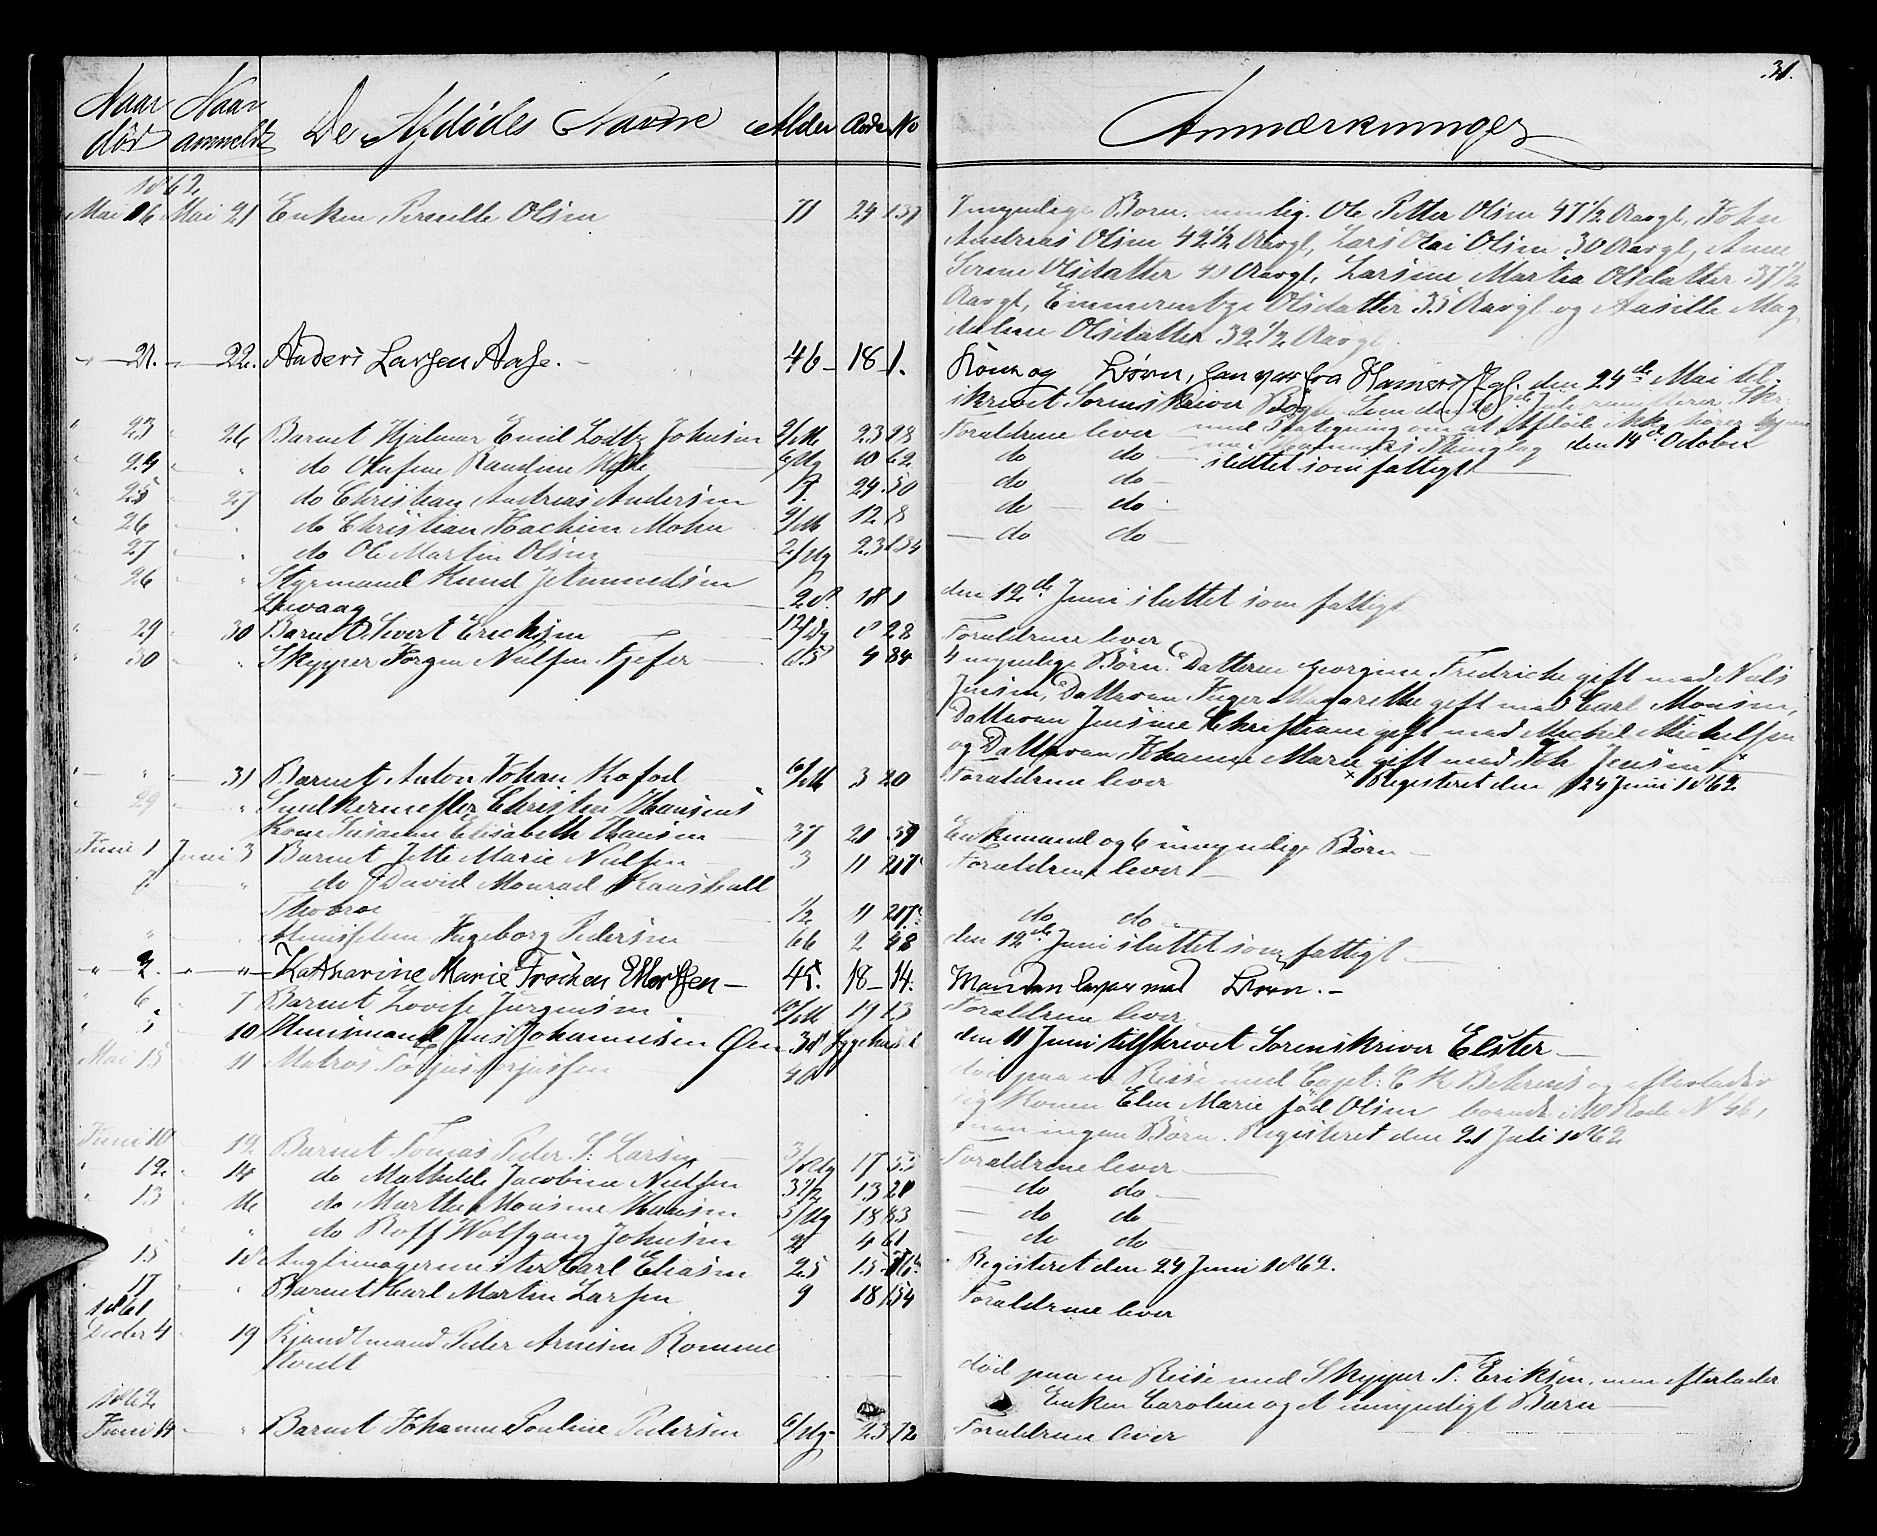 31.
Naar død Naar anmeldt De Afdødes Navne Alder Rode No Anmærkninger
1862
Mai 16 Mai 21 Enken Pernille Olsen 71 24 137 7 myndige Børn. nemlig. Ole Petter Olsen 47 1/2 Aargl, John
Andreas Olsen 42 1/2 Aargl, Lars Olai Olsen 30 Aargl, Anne
Serene Olsdatter 40 Aargl, Larsine Martia Olsdatter 37 1/2
Aargl, Emmerentze Olsdatter 35 Aargl og Aasille Mag
dalene Olsdatter 32 1/2 Aargl
" 21. " 22. Anders Larsen Aase. 46 18 1. Kone og Børn, han var fra Hammers Pgl. den 24de Mai til-
skrevet Sorenskriver
" 23 " 26 Barnet Hjalmar Emil Lodtz Johnsen 2/M 23 28 Forældrene lever
med Paategning om at Afdøde ikke hører hjem
den 14de October
" 24 " " do Olufine Randine Hylle 6/Ug 10 62 do do
sluttet som fattigt
" 25 " 27 do Christian Andreas Andersen 24 50 do do
" 26 " " do Christian Joachim Mohn 2/M 12 8 do do
" 27 " " do Ole Martin Olsen 2/Ug 23 134 do do
" 26 " " Styrmand Knud J Amundsen
28 18 1 den 12de Juni sluttet som fattigt
" 29 " 30 Barnet Sivert Ericksen 12/Dg 8 28 Forældrene lever
" 30 " " Skipper Jørgen Nielsen Fjefer 65 4 84 4 myndige Børn. Datteren Georgine Fredricke gift med Niels
Jensen, Datteren Inger Margarethe gift med Carl Monsen,
Datteren Jensine Christiane gift med Michel Michelsen
og Datteren Johanne Marie gift med Joh Jensen x
" " " 31 Barnet Anton Johan Kofod 6/M 3 20 Forældrene lever x Registeret den 24 Juni 1862
" 29 " " Snedkermester Christen Hansens
Kone Susanne Elisabeth Hansen 37 21 59 Enkemand og 6 umyndige Børn
Juni 1 Juni 3 Barnet Jette Marie Nielsen 3 11 207 Forældrene lever
" 2 " " do David Monrad Kaashall
Thobroe 1/2 11 207 do do
" " " Huusfolem Ingeborg Pedersen 66 2 48 den 12de Juni sluttet som fattigt
" 2. " " Katharine Marie Trochen Ellertsen 45. 18 14. Manden lever med Børn.
" 6 " 7 Barnet Lovise Jürgensen 10/M 19 13 Forældrene lever
" 5 " 10 Huusmand Jens Johannesen Øen 38 Sygehuset den 11 Juni tilskrevet Sorenskriver Elster
Mai 15 11 Matros Torjus Torjussen 40 død paa en Reise med Capt: C K Behrens og efterlader
sig Konen Elen Marie fød Olsen boende i 10 Rode No 46,
men ingen Børn. Registeret den 21 Juli 1862
Juni 10 12 Barnet Tomas Peder S. Larsen 3/Ug 17 53 Forældrene lever
" 12 14 do Mathilde Jacobine Nielsen 3 1/2 13 20 do do
" 13 16 do Marthe Monsine Hansen 3/Ug 18 83 do do
" " " do Roff Wolfgang Johnsen 2 4 61 do do
" 15 18 Seglmagermester Carl Eliasen 25 15 Registeret den 24 Juni 1862.
" 17 " Barnet Karl Martin Larsen 9 18 154 Forældrene lever
1861
Decbr 4 19 Kjendtmand Peder Arnesen Romme
tvedt død paa en Reise med Skipper T. Eriksen, men efterlader
Enken Caroline og 1 umyndigt Barn
1862
Juni 14 " Barnet Johanne Pouline Pedersen 6/Ug 23 72 Forældrene lever